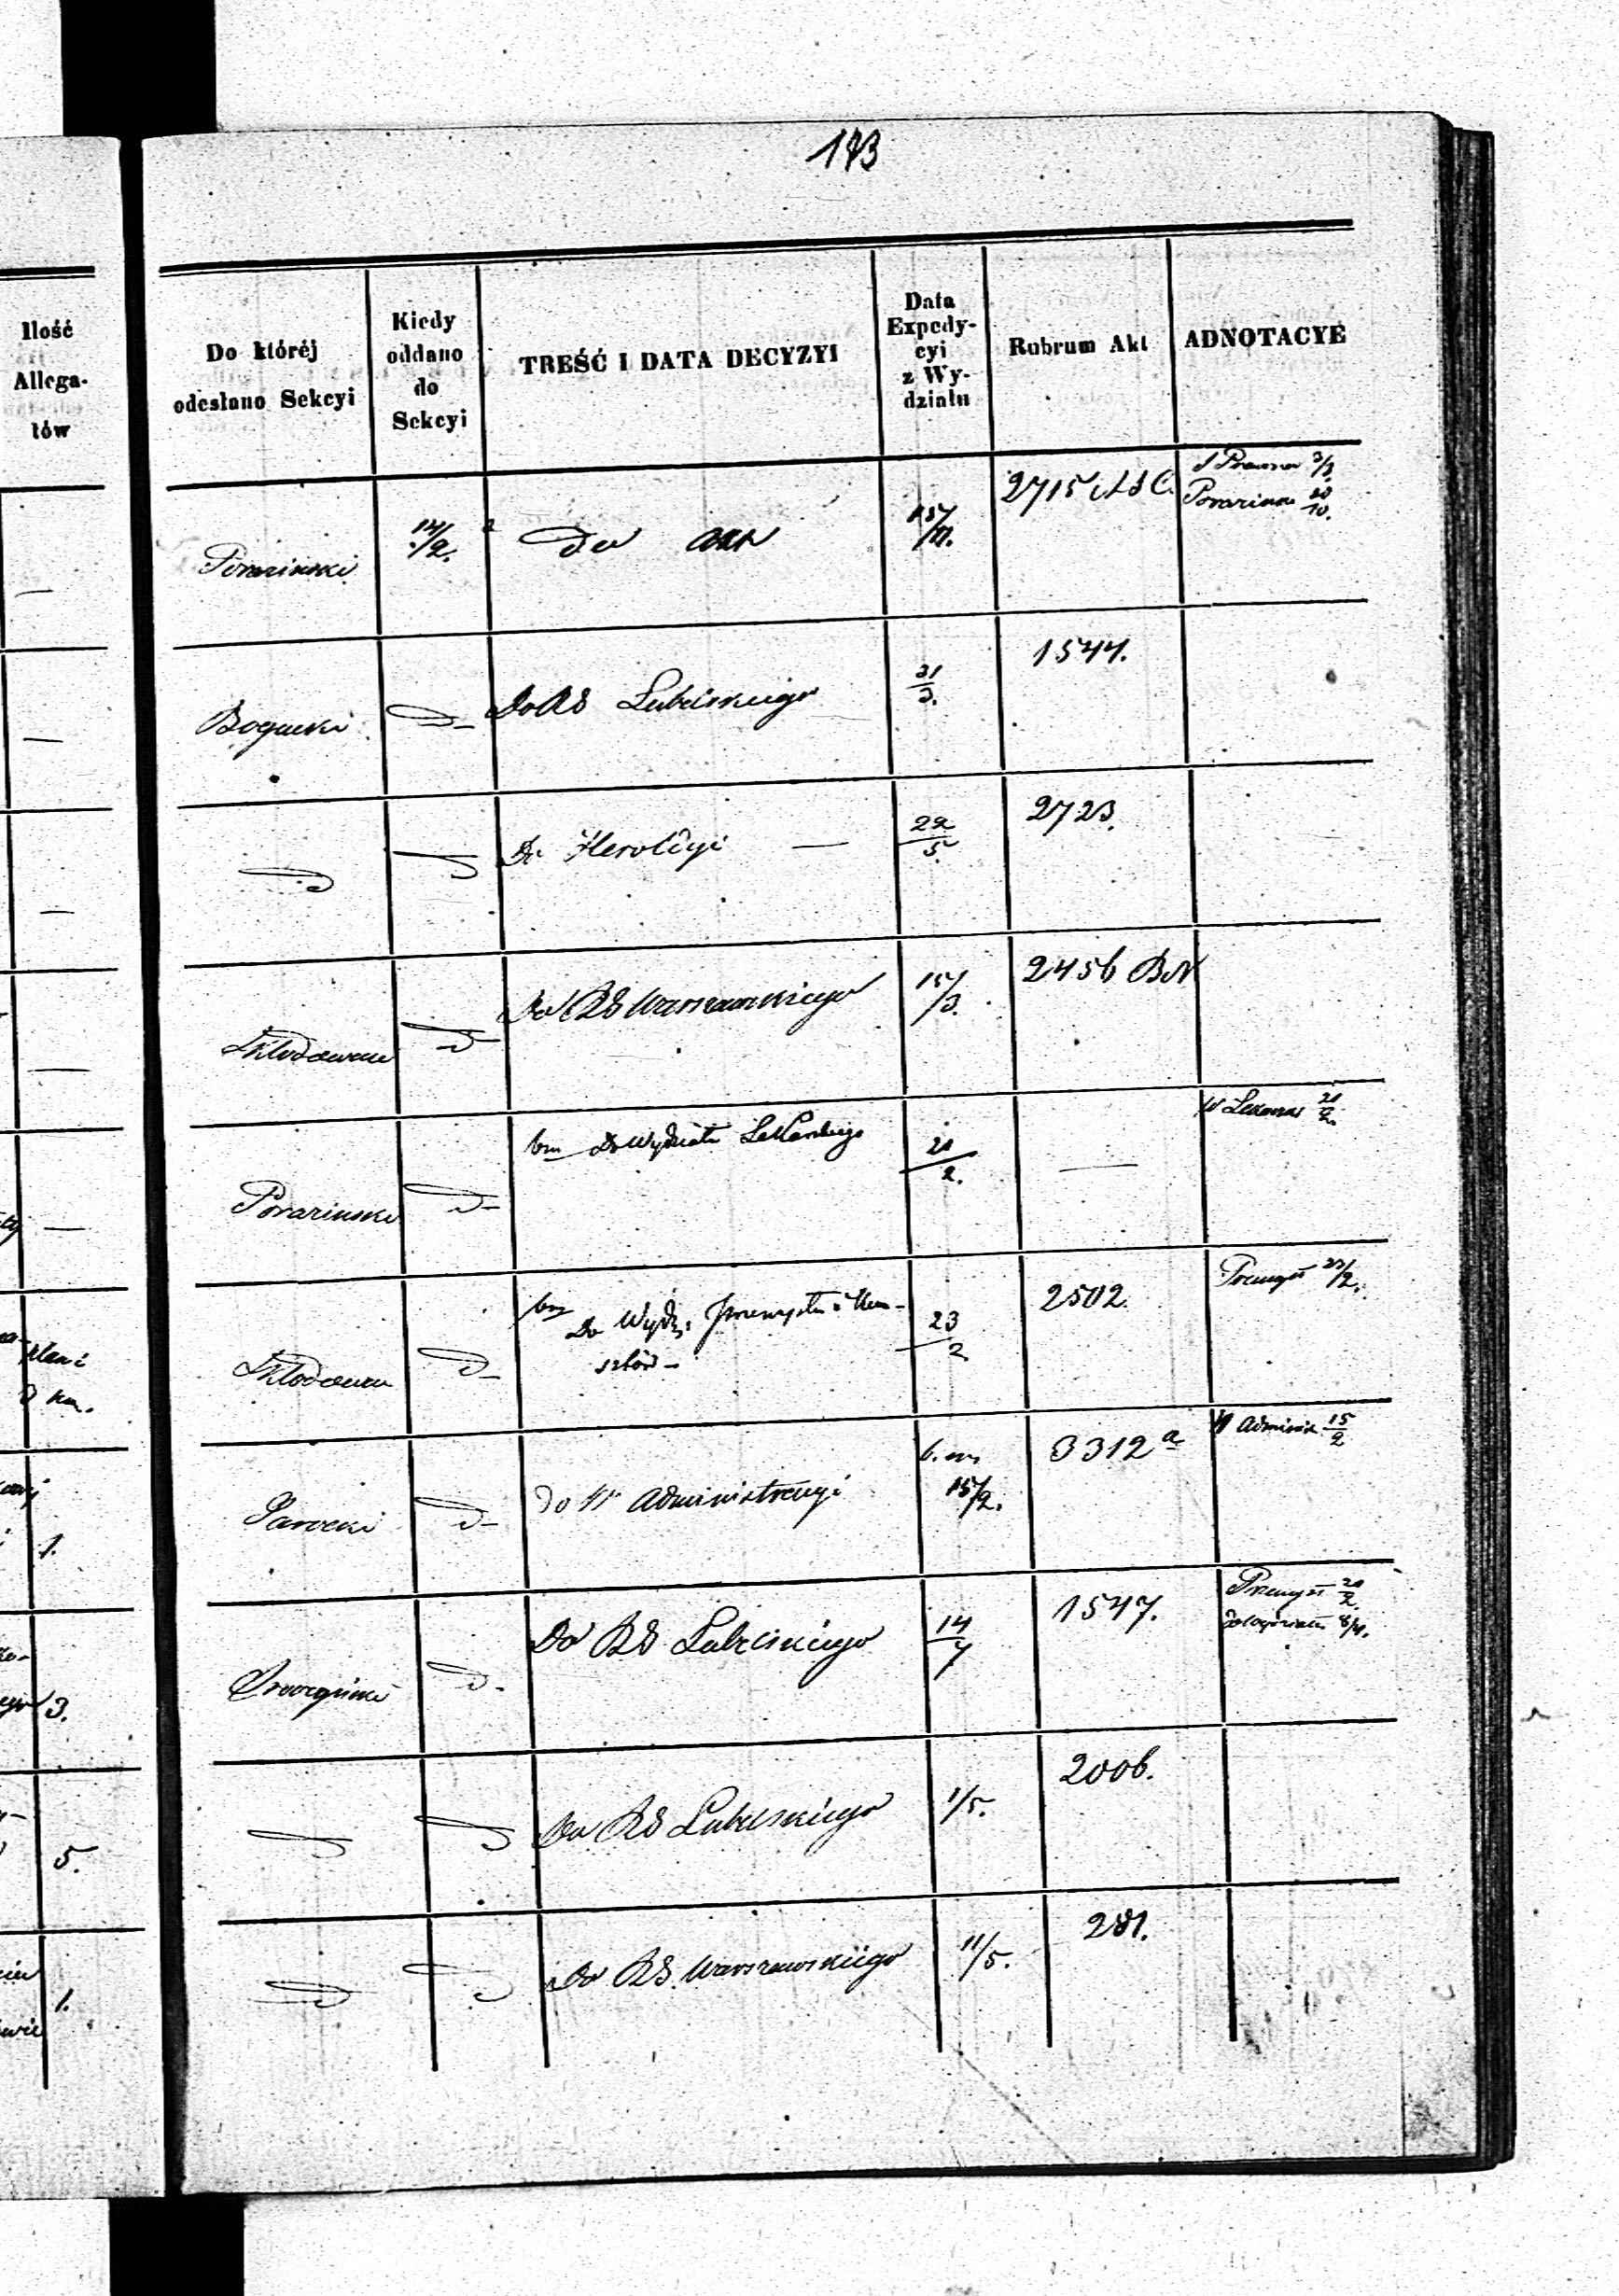 173
Ilość
Allega-
tów
Do któréj
odesłano Sekcyi
Kiedy
oddano
do
Sekcyi
TREŚĆ I DATA DECYZYI
Data
Expedy-
cyi
z Wy-
działu
Rubrum Akt
ADNOTACYE
Poraziński
14/2.
Do akt
15/11.
2715
Poraziński 20/10.
Bogucki
Do RG Lubelskiego
21/3.
1544.
Do Heroldyi —
22/5
2723.
Skłodowski
Do RG Warszawskiego
15/3.
2456
Poraziński
bm Do Wydziału Lekarskiego
21/2.
—
W Lekarski 21/2.
Skłodowski
bm
Do Wydz. Przemysłu i Kun-
sztów —
23/2
2502.
Przemysł 23/2.
Do W Administracyi
b. m.
15/2.
3312 a
W Administ. 15/2
Do RG Lubelskiego
14/4
1547.
Przemysł 21/2.
Do RG Lubelskiego
1/5.
2006.
Do RG. Warszawskiego
11/5.
281.
1.
3.
5.
1.